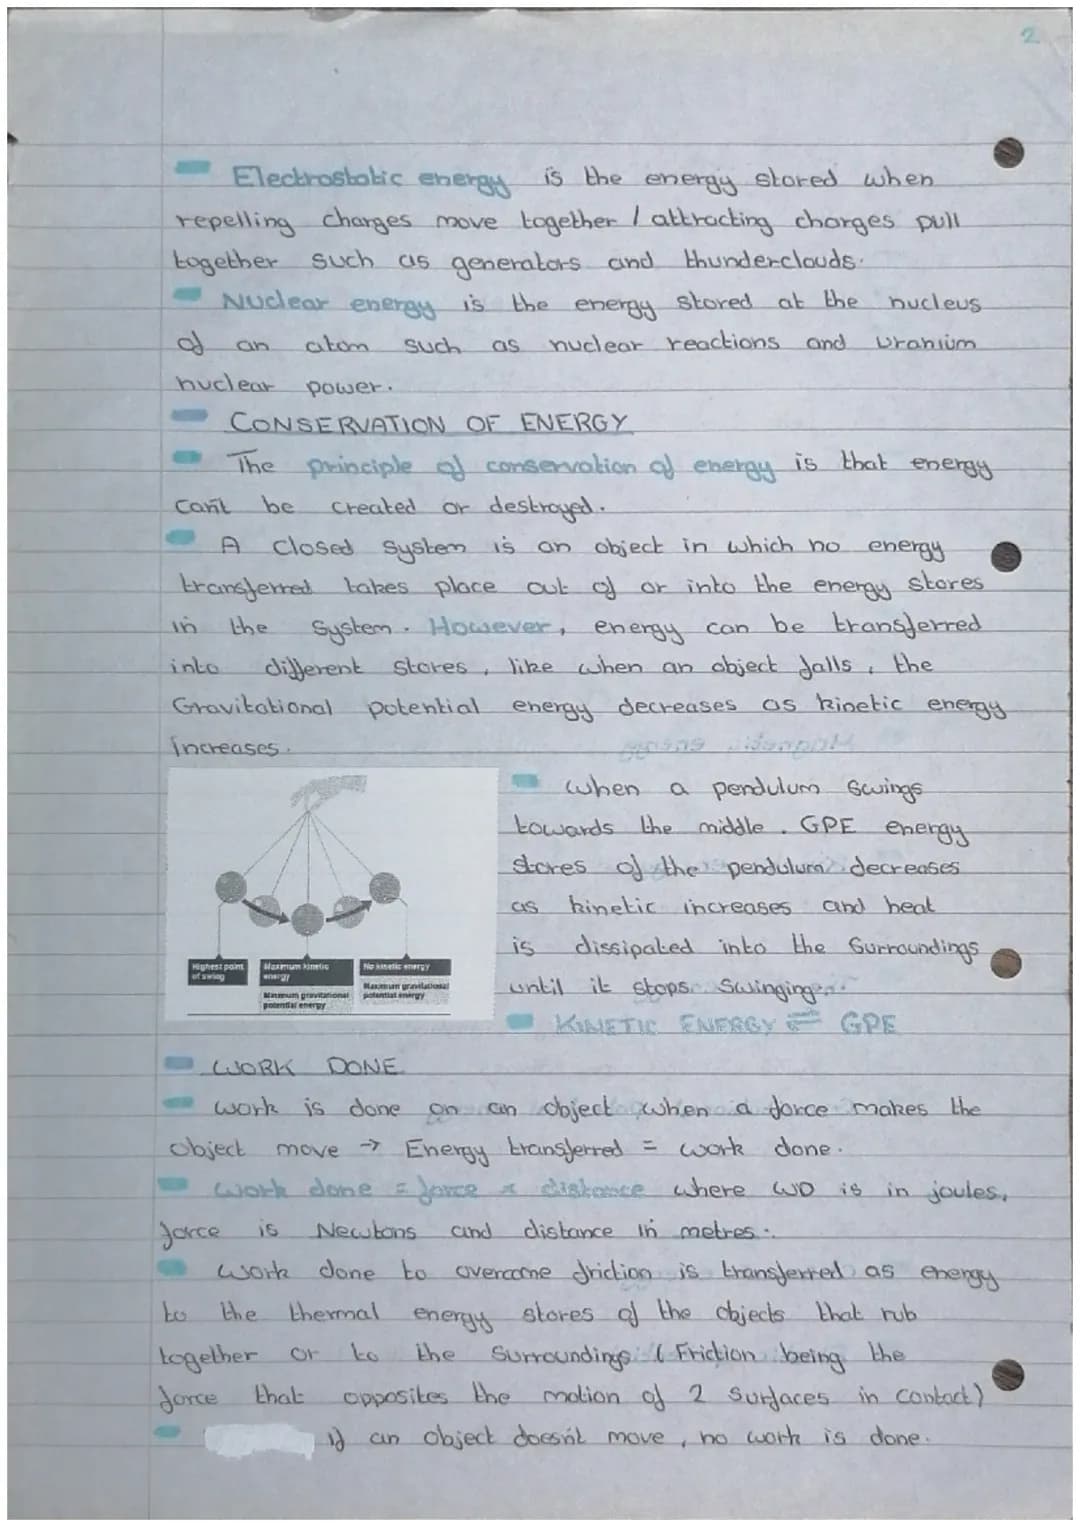 2
Electrostatic energy is the energy stored when
repelling charges move together / attracting charges pull
together such as generators and thunderclouds.
Nuclear energy is the energy stored at the nucleus
of an atom such as nuclear reactions and uranium
nuclear power.
CONSERVATION OF ENERGY
The principle of conservation of energy is that energy
can't be created or destroyed.
A closed system is an object in which no energy
transferred takes place out of or into the energy stores
in the system. However, energy can be transferred
into different stores, like when an object falls, the
Gravitational potential energy decreases as kinetic energy
increases.
when a pendulum swings
towards the middle. GPE energy
stores of the pendulum decreases
as kinetic increases and heat
is dissipated into the surroundings
until it stops swinging.
KINETIC ENERGY ⇌ GPE
Highest point
of swing
Maximum kinetic
energy
Minimum gravitational
potential energy
No kinetic energy
Maximum gravitational
potential energy
WORK DONE
work is done on an object when a force makes the
object move → Energy transferred = work done.
work done = force x distance where WD is in joules,
force is Newtons and distance in metres.
work done to overcome friction is transferred as energy
to the thermal energy stores of the objects that rub
together or to the surroundings (Friction being the
force that opposites the motion of 2 surfaces in contact)
if an object doesn't move, no work is done.